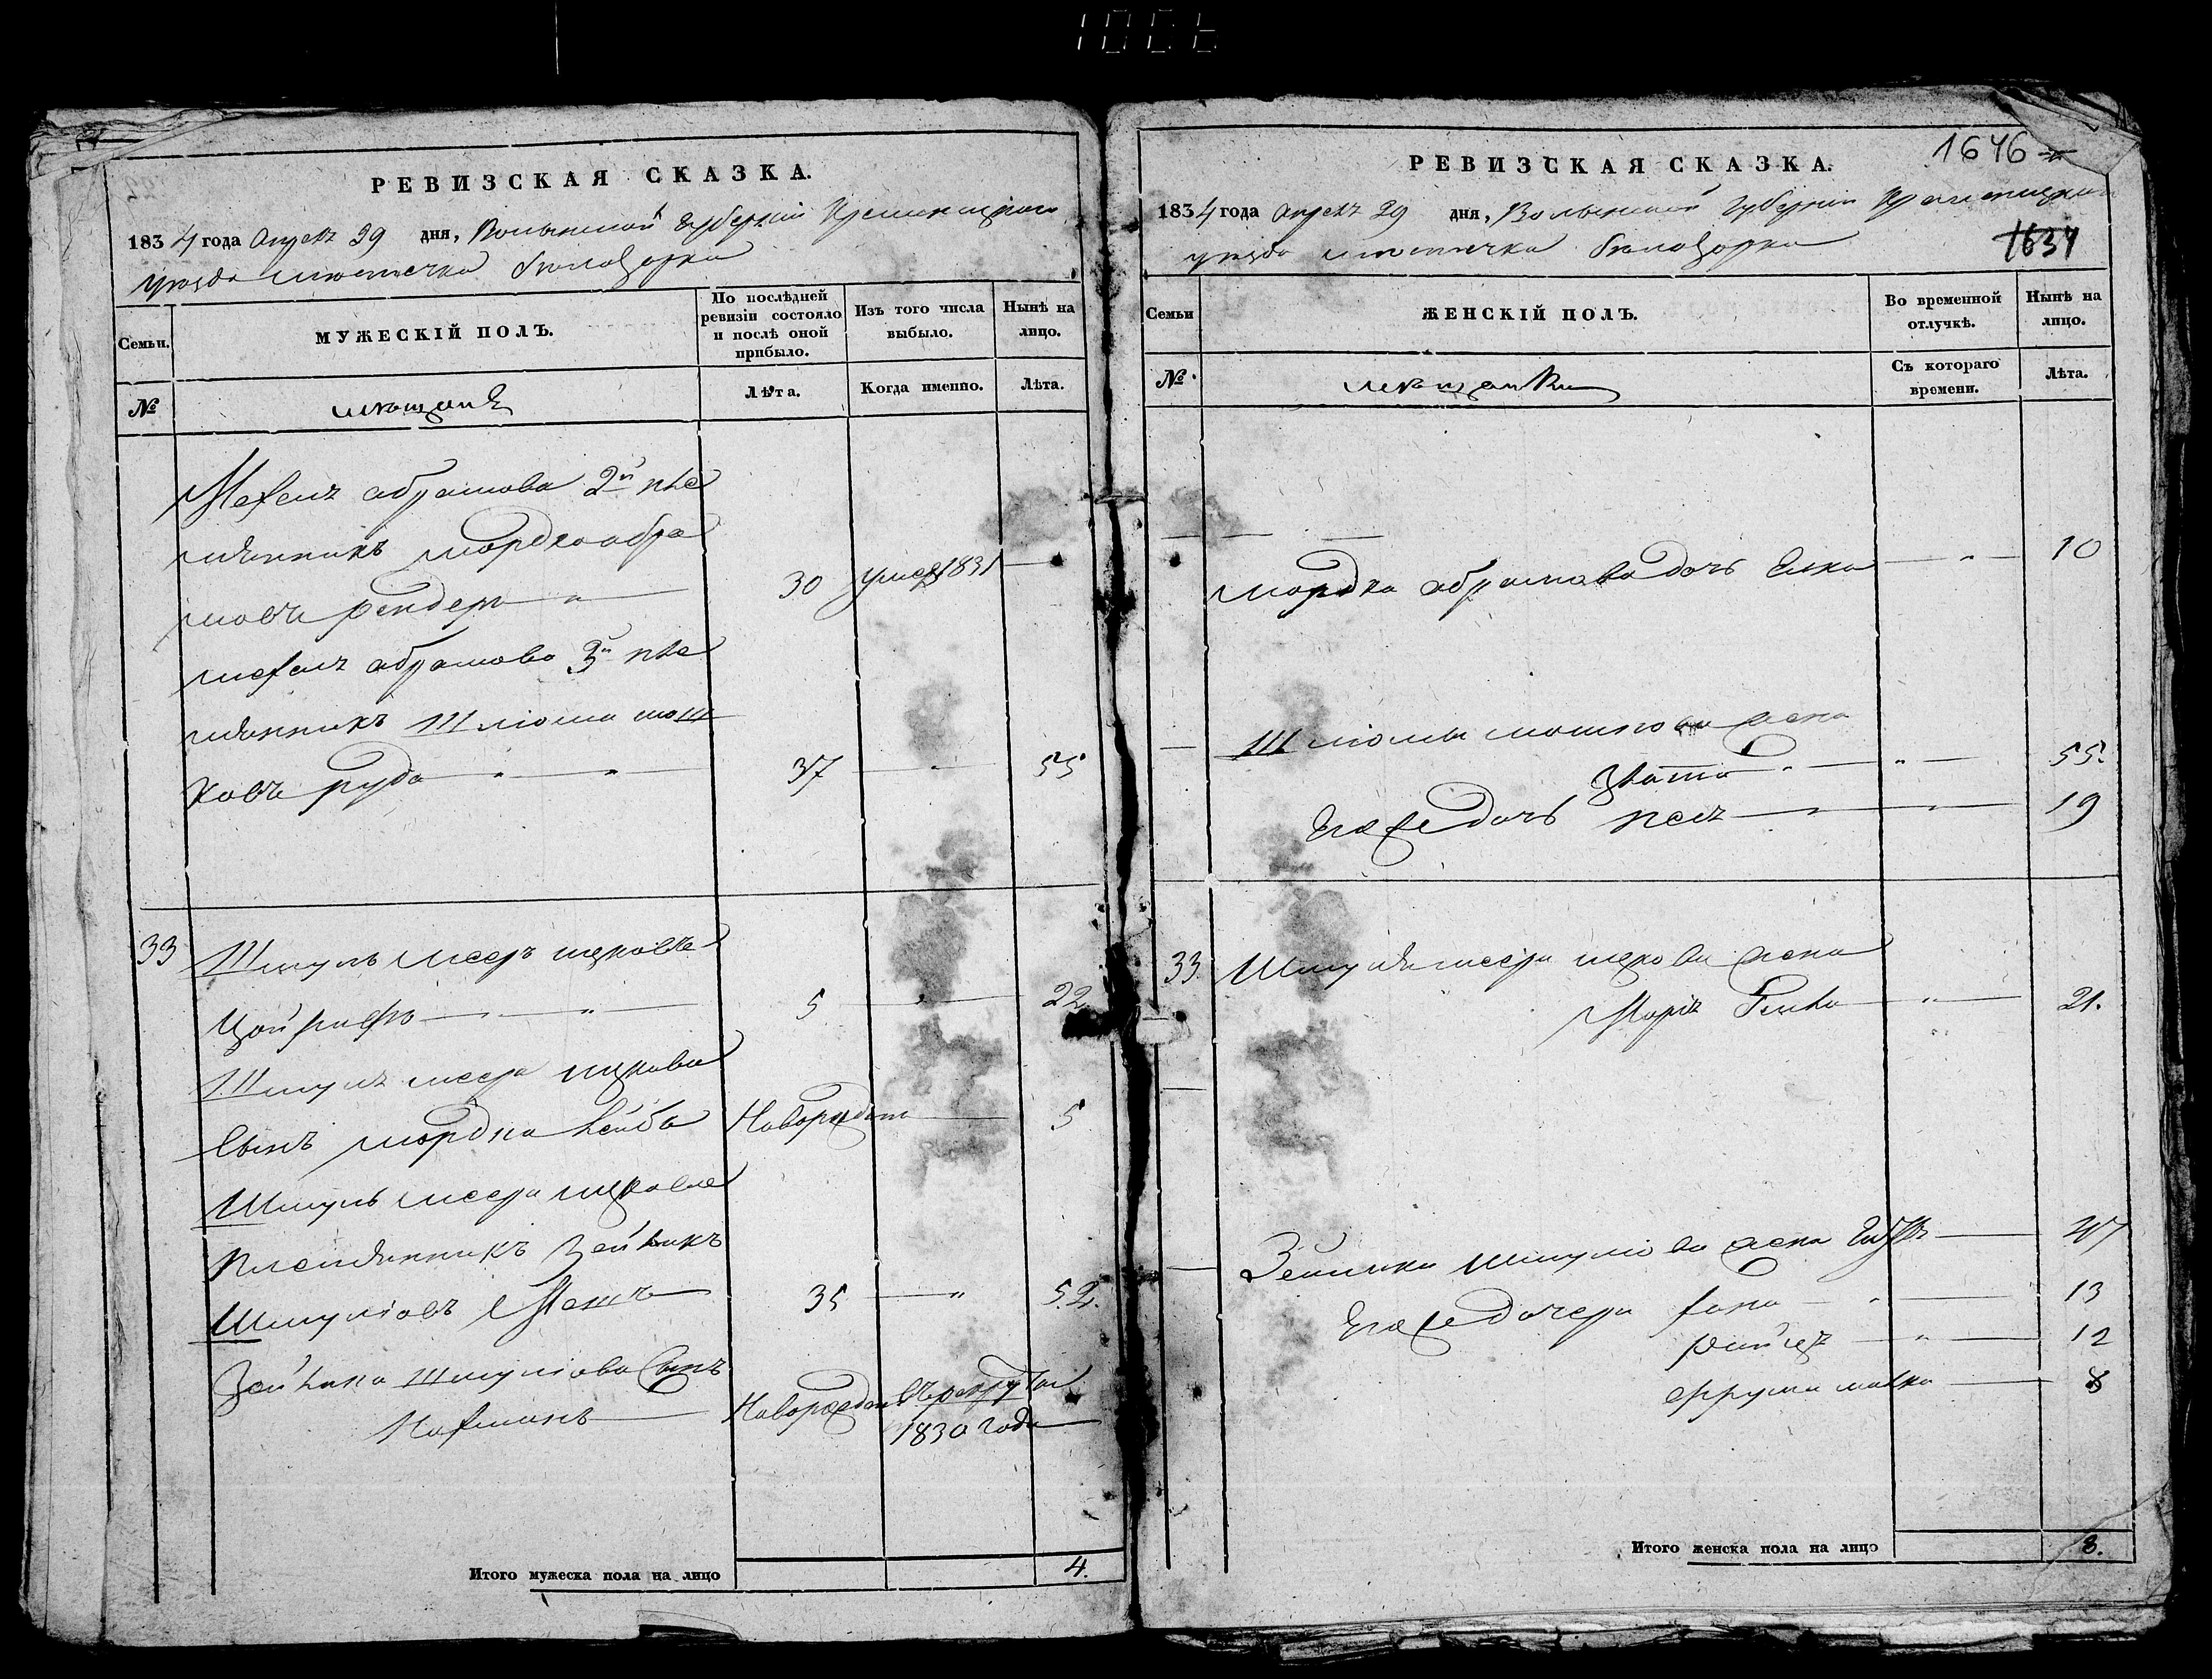 РЕВИЗСКАЯ СКАЗКА.
1834 года Апреля 29 дня, Волынской Губерніи Кременецкого
уезда местечка Белозорка
Семьи.
МУЖЕСКІЙ ПОЛЪ.
По послѣдней ревизіи состояло и послѣ оной прибыло.
Изъ того числа выбыло.
Нынѣ на лицо.
№
мещане
Лѣта.
Когда именно.
Лѣта.
абрамова 2й пле
мянникъ мордко абра
мовъ 30 умер 1831
абрамова 3й пле
мянникъ Шліома мош
ковъ руда 37 55
33 Шмуль меер ицковъ
5 22
Шмуля меера ицкова
сынъ мордко лейба Новорожден 5
Шмуль меера ицкова
племянникъ Зейликъ
Шмуліовъ 35 52.
Зейлика Шмуліова сынъ
Нахманъ Новорожден въ рекруты
1830 года
Итого мужеска пола на лицо 4.
1646
РЕВИЗСКАЯ СКАЗКА.
1834 года Апреля 29 дня, Волынской Губерніи Кременецкого
1634
уезда местечка Белозорка
Семьи
ЖЕНСКІЙ ПОЛЪ.
Во временной отлучкѣ.
Нынѣ на лицо.
№
мещанки
Съ котораго времени.
Лѣта.
мордка абрамова дочь Елка 10
Шліомы мошкова жена
Злата 55.
Его же дочь 19
33. Шмуля меера ицкова жена
21.
Зейлика шмуліова жена 47
Его же дочери хана 13
12
фрума малка 8
Итого женска пола на лицо 8.